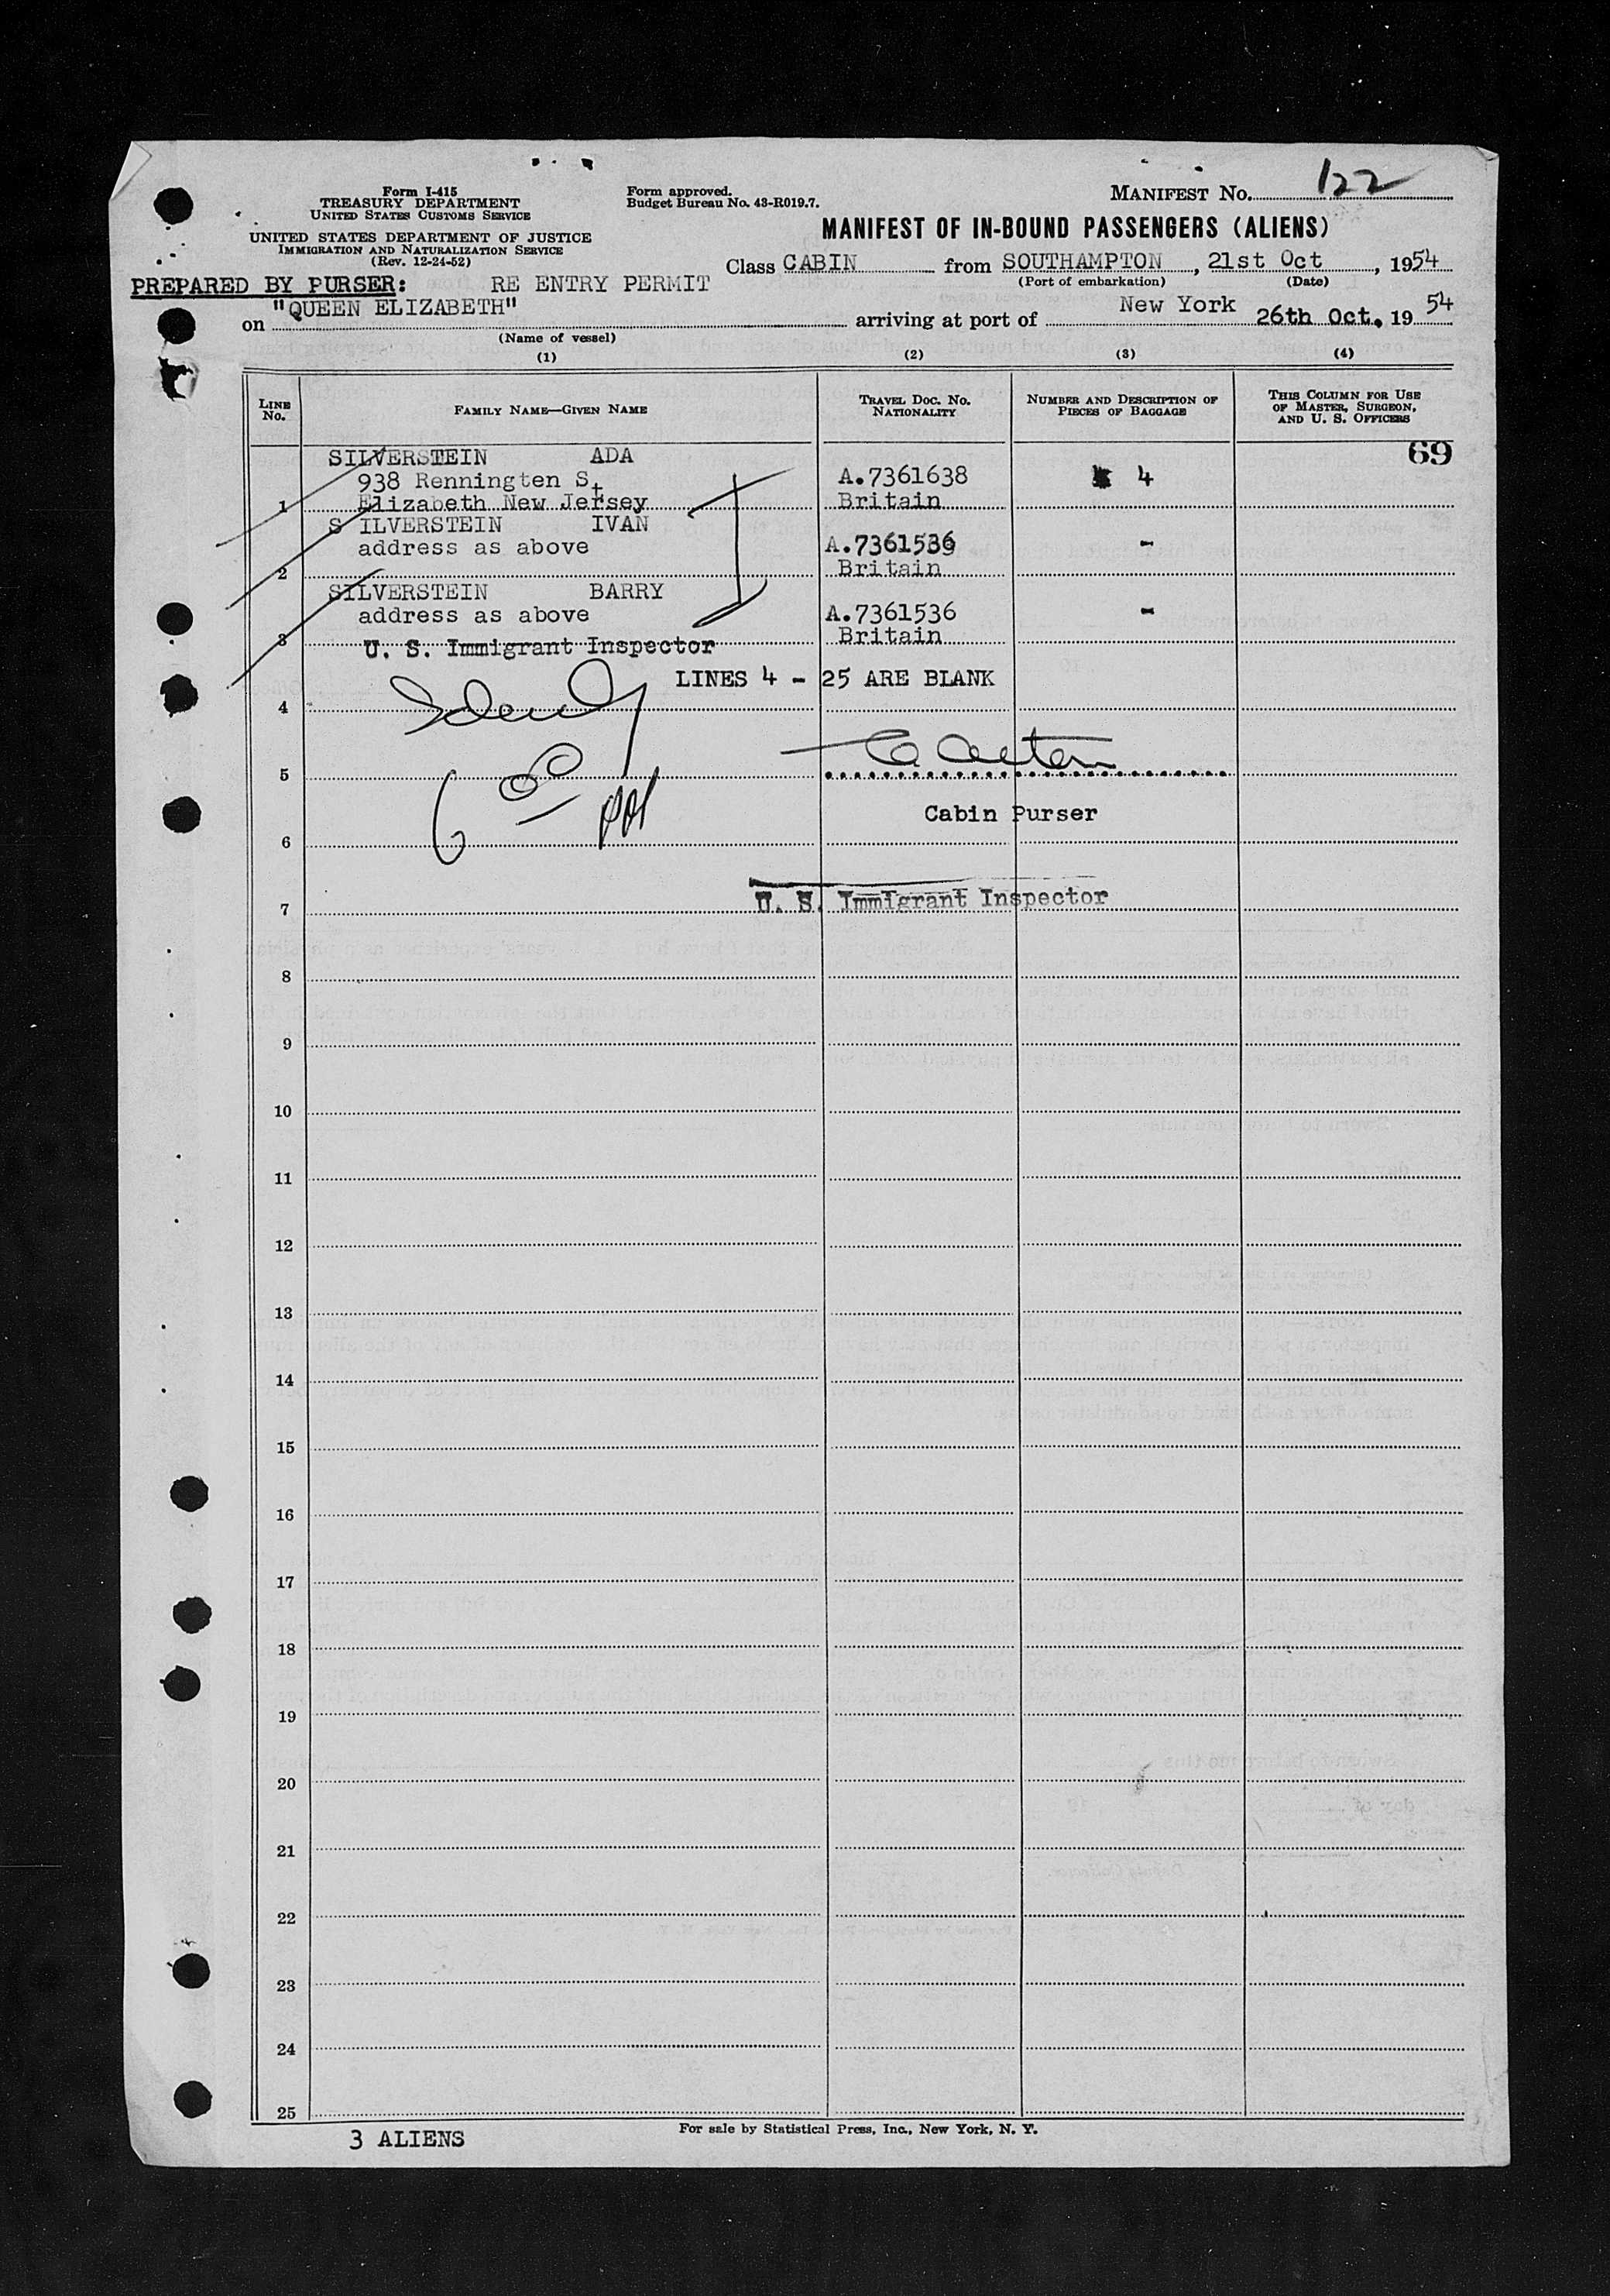 Form I-415
TREASURY DEPARTMENT
UNITED STATES CUSTOMS SERVICE
UNITED STATES DEPARTMENT OF JUSTICE
IMMIGRATION AND NATURALIZATION SERVICE
(Rev. 12-24-52)
Form approved.
Budget Bureau No. 43-R019.7.
MANIFEST No. 122
MANIFEST OF IN-BOUND PASSENGERS (ALIENS)
Class CABIN from SOUTHAMPTON, 21st Oct, 1954
(Port of embarkation) (Date)
PREPARED BY PURSER: RE ENTRY PERMIT
on "QUEEN ELIZABETH" arriving at port of New York 26th Oct. 19 54
(Name of vessel)
(1) (2) (3) (4)
LINE No. FAMILY NAME—GIVEN NAME TRAVEL DOC. NO. NATIONALITY NUMBER AND DESCRIPTION OF PIECES OF BAGGAGE THIS COLUMN FOR USE OF MASTER, SURGEON, AND U. S. OFFICERS
69
SILVERSTEIN ADA
938 Renningten St A.7361638 4
1 Elizabeth New Jersey Britain
S ILVERSTEIN IVAN
address as above A.7361536 -
2 Britain
SILVERSTEIN BARRY
address as above A.7361536 -
3 U. S. Immigrant Inspector Britain
LINES 4 - 25 ARE BLANK
4
5
Cabin Purser
6
7 U. S. Immigrant Inspector
8
9
10
11
12
13
14
15
16
17
18
19
20
21
22
23
24
25
3 ALIENS
For sale by Statistical Press, Inc., New York, N. Y.